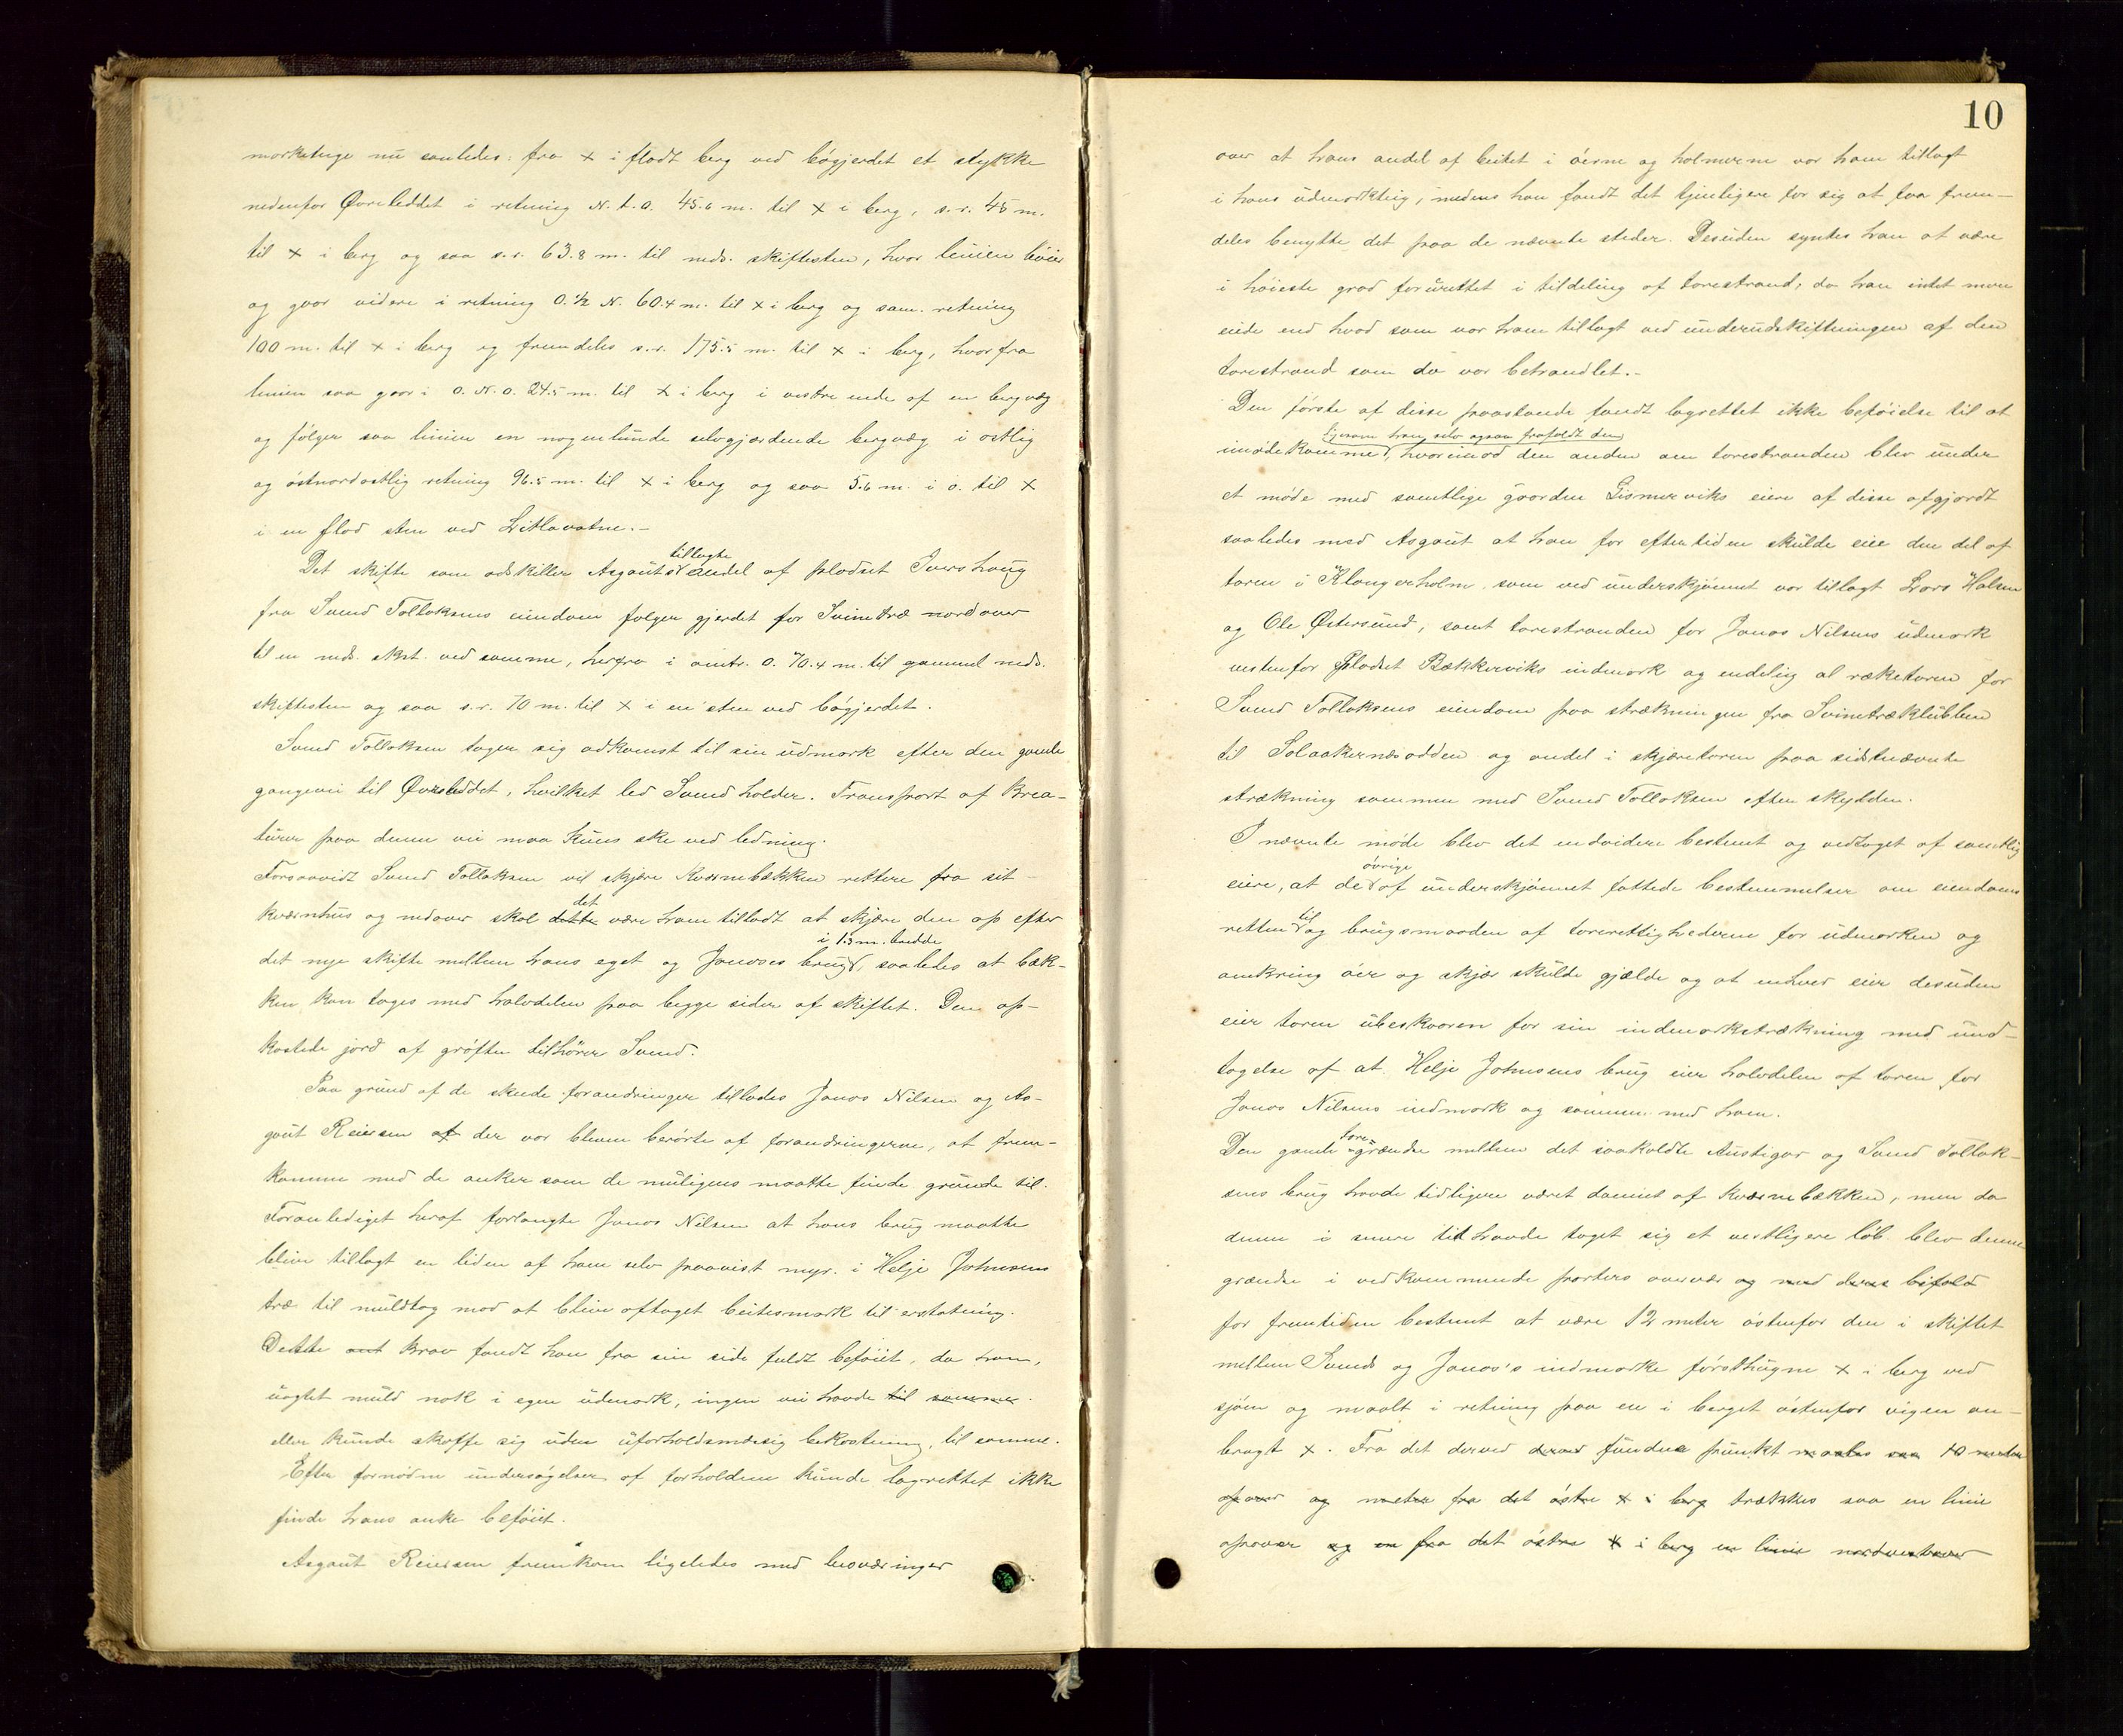 morksteige nu saaledes: fra × i fladt berg ved bøgjerdet et stykke
nedenfor Øvreleddet i retning N.t.O. 45.6 m. til × i berg, s.r. 45 m.
til × i berg og saa s.r. 63.8 m. til neds. skiftesten, hvor linien bøier
og gaar videre i retning O.½ N. 60.4 m. til × i berg og sam. retning
100 m. til × i berg og fremdeles s.r. 175.5 m. til × i berg, hvorfra
linien saa gaar i O.N.O. 24.5 m. til × i berg i vestre ende af en bergvæg
og følger saa linien en nogenlunde selvgjærdende bergvæg i ostlig
og østnordostlig retning 96.5 m. til × i berg og saa 5.6 m. i o. til ×
i en flad sten ved Litlavatne.-
Det skifte som adskiller Asgauts tillagte andel af pladset Ivers haug
fra Svend Tollaksens eiendom følger gjerdet for Svinetræ nordover
til en neds. skst. ved samme, herfra i omtr. O. 70.4 m. til gammel neds.
skiftesten og saa s.r. 70 m. til × i en sten ved bøgjerdet.
Svend Tollaksen tager sig adkomst til sin udmark efter den gamle
gangevei til Øvreleddet, hvilket led Svend holder. Transport af Krea-
turer paa denne vei maa kuns ske ved ledning.
Forsaavidt Svend Tollaksen vil skjære Kværnebækken rettere fra sit
kværnhus og nedover skal dette det være ham tilladt at skjære den op efter
det nye skifte mellem hans eget og Jonases brug i 1.3 m. bredde, saaledes at bæk-
ken kan tages med halvdelen paa begge sider af skiftet. Den op-
kastede jord af grøften tilhører Svend.
Paa grund af de skede forandringer tillodes Jonas Nilsen og As-
gaut Reiersen af der var bleven berørte af forandringerne, at frem-
komme med de anker som de muligens maatte finde grunde til.
Foranlediget heraf forlangte Jonas Nilsen at hans brug maatte
blive tillagt en liden af ham selv paavist myr i Helje Johnsens
træ til muldtag mod at blive aftaget beitesmark til erstatning.
Dette krav fandt han fra sin side fuldt beføiet, da ham,
uagtet muld nok i egen udmark, ingen vei havde til samme
eller kunde skaffe sig uden uforholdsmæsig bekostning, til samme.
Efter fornødne undersøgelser af forholdene kunde lagrettet ikke
finde hans anke beføiet.
Asgaut Reiersen fremkom ligeledes med besværinger
10
over at hans andel af beitet i øerne og holmerne var ham tillagt
i hans udmarkteig, medens han fandt det tjenligere for sig at faa frem-
deles benytte det paa de nævnte steder. Desuden syntes han at være
i høieste grad forurettet i tildeling af tarestrand, da han intet mere
eiede end hvad som var ham tillagt ved underudskiftningen af den
tarestrand som da var behandlet.-
Den første af disse paastande fandt lagrettet ikke beføielse til at
ligesom han selv ogsaa frafaldt den
imødekomme, hvorimod den anden om tarestranden blev under
et møde med samtlige gaarden Gismerviks eiere af disse afgjordt
saaledes med Asgaut at han for eftertiden skulde eie den del af
taren i Klongerholm som ved underskjønnet var tillagt Lars Halsen
og Ole Østersund, samt tarestranden for Jonas Nilsens udmark
vestenfor Pladset Bækkerviks indmark og endelig al ræketaren for
Svend Tollaksens eiendom paa strækningen fra Svinetræklubben
til Solaakernæsodden og andel i skjæretaren paa sidstnævnte
strækning sammen med Svend Tollaksen efter skylden.
I nævnte møde blev det endvidere bestemt og vedtaget af samtlige
eiere, at de øvrige af underskjønnet fattede bestemmelser om eiendoms
retten til og brugsmaaden af tarerettighederne for udmarken og
omkring øer og skjær skulde gjælde og at enhver eier desuden
eier taren ubeskaaren for sin indmarkstrækning med und-
tagelse af at Helje Johnsens brug eier halvdelen af taren for
Jonas Nilsens indmark og sammen med ham.
Den gamle tare-grændse mellem det saakaldte Austigar og Svend Tollak-
sens brug havde tidligere været dannet af kværnebækken, men da
denne i senere tid havde taget sig et vestligere løb blev denne
grændse i vedkommende parters overvær og med deres bifald
for fremtiden bestemt at være 12 meter østenfor den i skiftet
mellem Svends og Jonas's indmarke førsthugne × i berg ved
sjøen og maalt i retning paa en i berget østenfor vigen an-
bragt ×. Fra det derved derved fundne punkt maales saa 10 meter
opover og meter fra det østre × i berg trækkes saa en linie
opover og en fra det østre × i berg en linie nordvestover